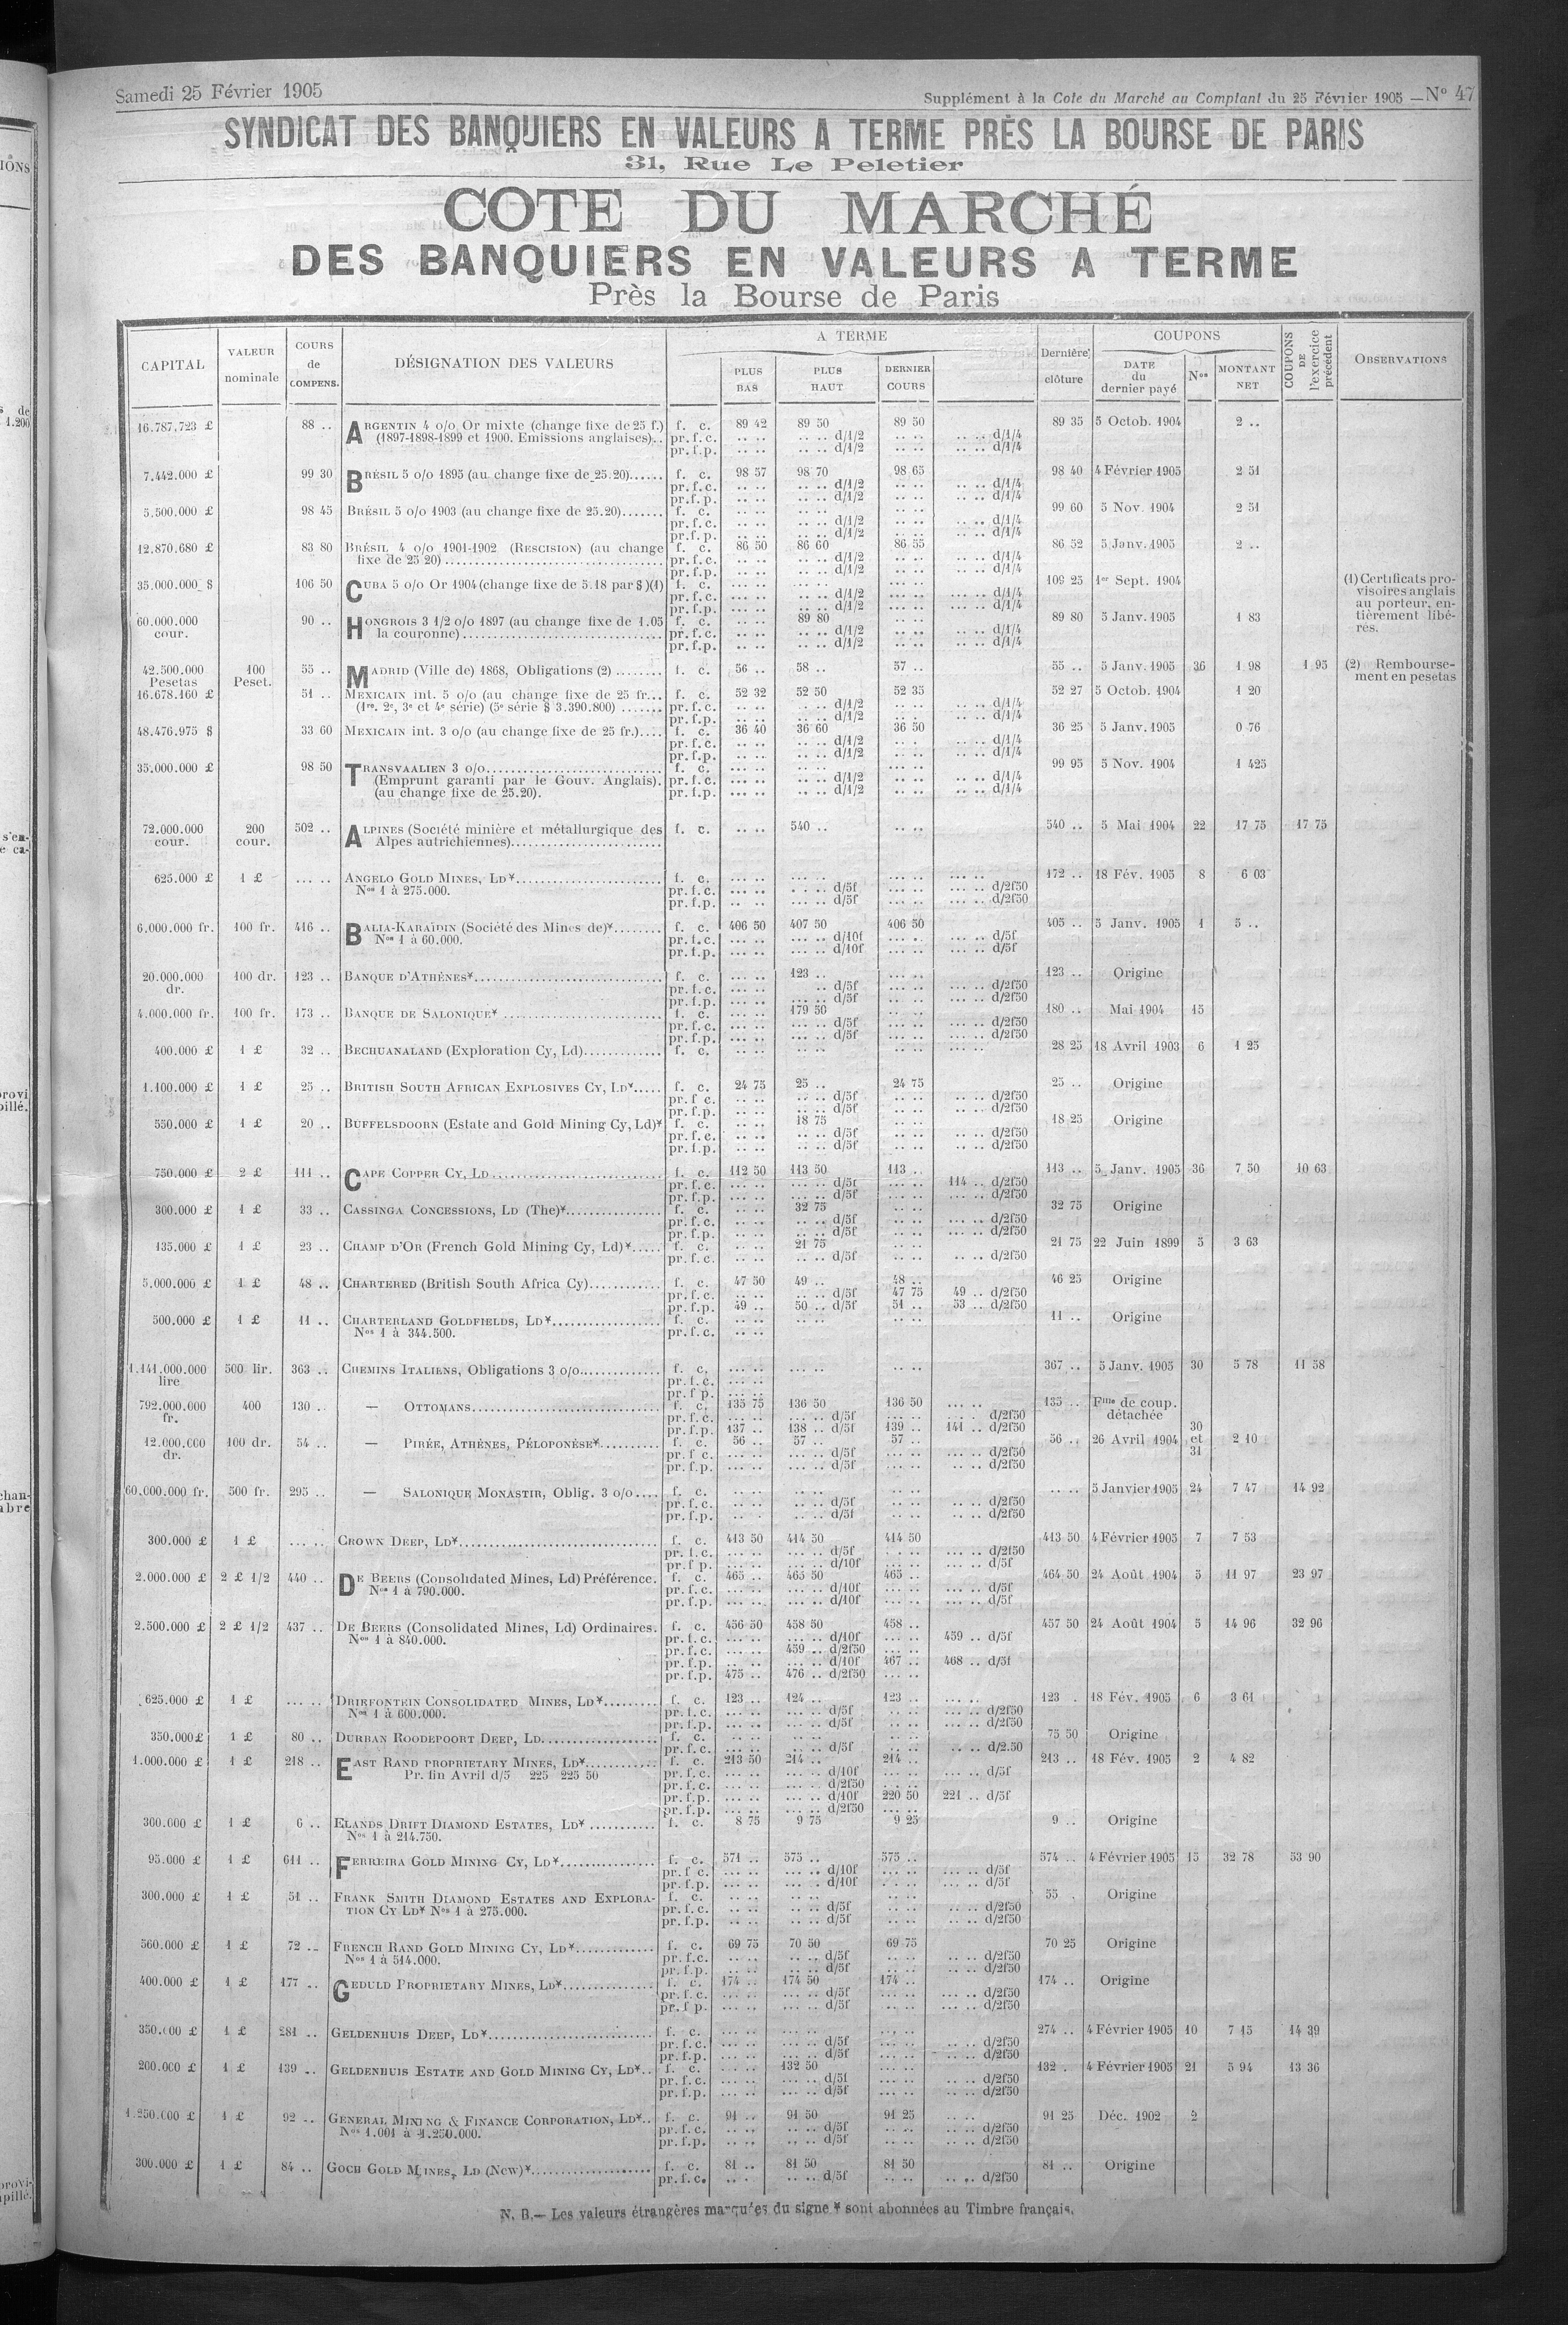 Samedi 25 Février 1905
Supplément à la Cote du Marché au Comptant du 25 Février 1905 — N° 47
SYNDICAT DES BANQUIERS EN VALEURS A TERME PRÈS LA BOURSE DE PARIS
31, Rue Le Peletier
COTE DU MARCHÉ
DES BANQUIERS EN VALEURS A TERME
Près la Bourse de Paris
CAPITAL | VALEUR nominale | COURS de COMPENS. | DÉSIGNATION DES VALEURS | A TERME | PLUS BAS | PLUS HAUT | DERNIER COURS | Dernière clôture | COUPONS | DATE du dernier payé | Nos | MONTANT NET | COUPONS DE l'exercice précédent | OBSERVATIONS
16.787.723 £ 88 .. ARGENTIN 4 o/o Or mixte (change fixe de 25 f.) f. c. 89 42 89 50 89 50 89 35 5 Octob. 1904 2 ..
(1897-1898-1899 et 1900. Emissions anglaises).. pr. f. c. .. .. .. .. d/1/2 .. .. .. .. d/1/4
pr. f. p. .. .. .. .. d/1/2 .. .. .. .. d/1/4
7.442.000 £ 99 30 BRÉSIL 5 o/o 1895 (au change fixe de 25.20)...... f. c. 98 57 98 70 98 65 98 40 4 Février 1905 2 51
pr. f. c. .. .. .. .. d/1/2 .. .. .. .. d/1/4
pr. f. p. .. .. .. .. d/1/2 .. .. .. .. d/1/4
5.500.000 £ 98 45 BRÉSIL 5 o/o 1903 (au change fixe de 25.20)....... f. c. .. .. .. .. .. .. 99 60 5 Nov. 1904 2 51
pr. f. c. .. .. .. .. d/1/2 .. .. .. .. d/1/4
pr. f. p. .. .. .. .. d/1/2 .. .. .. .. d/1/4
12.870.680 £ 83 80 BRÉSIL 4 o/o 1901-1902 (RESCISION) (au change f. c. 86 50 86 60 86 55 86 52 5 Janv. 1905 2 ..
fixe de 25 20) pr. f. c. .. .. .. .. d/1/2 .. .. .. .. d/1/4
pr. f. p. .. .. .. .. d/1/2 .. .. .. .. d/1/4
35.000.000 $ 106 50 CUBA 5 o/o Or 1904 (change fixe de 5.18 par $)(1) f. c. ... .. ... .. ... .. 109 25 1er Sept. 1904
pr. f. c. ... .. ... .. d/1/2 ... .. ... .. d/1/4
pr. f. p. ... .. ... .. d/1/2 ... .. ... .. d/1/4
(1) Certificats provisoires anglais
au porteur, entièrement libérés.
60.000.000 cour. 90 .. HONGROIS 3 1/2 o/o 1897 (au change fixe de 1.05 f. c. .. .. 89 80 .. .. 89 80 5 Janv. 1905 1 83
la couronne) pr. f. c. .. .. .. .. d/1/2 .. .. .. .. d/1/4
pr. f. p. .. .. .. .. d/1/2 .. .. .. .. d/1/4
42.500.000 Pesetas 100 Peset. 55 .. MADRID (Ville de) 1868, Obligations (2) ........ f. c. 56 .. 58 .. 57 .. 55 .. 5 Janv. 1905 36 1 98 1 95
(2) Remboursement en pesetas
16.678.160 £ 51 .. MEXICAIN int. 5 o/o (au change fixe de 25 fr... f. c. 52 32 52 50 52 35 52 27 5 Octob. 1904 1 20
(1re. 2e, 3e et 4e série) (5e série $ 3.390.800) ....... pr. f. c. .. .. .. .. d/1/2 .. .. .. .. d/1/4
pr. f. p. .. .. .. .. d/1/2 .. .. .. .. d/1/4
48.476.975 $ 33 60 MEXICAIN int. 3 o/o (au change fixe de 25 fr.).... f. c. 36 40 36 60 36 50 36 25 5 Janv. 1905 0 76
pr. f. c. .. .. .. .. d/1/2 .. .. .. .. d/1/4
pr. f. p. .. .. .. .. d/1/2 .. .. .. .. d/1/4
35.000.000 £ 98 50 TRANSVAALIEN 3 o/o f. c. ... .. 99 95 5 Nov. 1904 1 425
(Emprunt garanti par le Gouv. Anglais). pr. f. c. ... .. .. .. d/1/2 .. .. .. .. d/1/4
(au change fixe de 25.20). pr. f. p. ... .. .. .. d/1/2 .. .. .. .. d/1/4
72.000.000 cour. 200 cour. 502 .. ALPINES (Société minière et métallurgique des f. c. .. .. 540 .. .. .. 540 .. 5 Mai 1904 22 17 75 17 75
Alpes autrichiennes)
625.000 £ 1 £ ... .. ANGELO GOLD MINES, LD* f. c. ... .. ... .. ... .. ... .. 172 .. 18 Fév. 1905 8 6 03
Nos 1 à 275.000. pr. f. c. ... .. ... .. d/5f ... .. ... .. d/2f50
pr. f. p. .. .. ... .. d/5f ... .. ... .. d/2f50
6.000.000 fr. 100 fr. 416 .. BALIA-KARAÏDIN (Société des Mines de)* f. c. 406 50 407 50 406 50 405 .. 5 Janv. 1905 1 5 ..
Nos 1 à 60.000. pr. f. c. ... .. ... .. d/10f ... .. ... .. d/5f
pr. f. p. ... .. ... .. d/10f ... .. ... .. d/5f
20.000.000 dr. 100 dr. 123 .. BANQUE D'ATHÈNES* f. c. ... .. 123 .. ... .. 123 .. Origine
pr. f. c. ... .. .. d/5f ... .. ... .. d/2f50
pr. f. p. ... .. ... .. d/5f .. .. ... .. d/2f50
4.000.000 fr. 100 fr. 173 .. BANQUE DE SALONIQUE* f. c. ... .. 179 50 .. .. 180 .. Mai 1904 15
pr. f. c. ... .. ... .. d/5f .. .. ... .. d/2f50
pr. f. p. ... .. ... .. d/5f .. .. ... .. d/2f50
400.000 £ 1 £ 32 .. BECHUANALAND (Exploration Cy, Ld) f. c. .. .. .. .. .. .. ... .. 28 25 18 Avril 1903 6 1 25
1.100.000 £ 1 £ 25 .. BRITISH SOUTH AFRICAN EXPLOSIVES CY, LD* f. c. 24 75 25 .. 24 75 25 .. Origine
pr. f. c. .. .. .. .. d/5f .. .. .. .. d/2f50
pr. f. p. .. .. .. .. d/5f .. .. .. .. d/2f50
550.000 £ 1 £ 20 .. BUFFELSDOORN (Estate and Gold Mining Cy, Ld)* f. c. .. .. 18 75 .. .. 18 25 Origine
pr. f. c. .. .. .. .. d/5f .. .. .. .. d/2f50
pr. f. p. .. .. .. .. d/5f .. .. .. .. d/2f50
750.000 £ 2 £ 111 .. CAPE COPPER CY, LD f. c. 112 50 113 50 113 .. 113 .. 5 Janv. 1905 36 7 50 10 63
pr. f. c. ... .. ... .. d/5f ... .. 114 .. d/2f50
pr. f. p. ... .. ... .. d/5f ... .. ... .. d/2f50
300.000 £ 1 £ 33 .. CASSINGA CONCESSIONS, LD (The)* f. c. .. .. 32 75 .. .. 32 75 Origine
pr. f. c. .. .. .. .. d/5f .. .. ... .. d/2f50
pr. f. p. .. .. .. .. d/5f .. .. ... .. d/2f50
135.000 £ 1 £ 23 .. CHAMP D'OR (French Gold Mining Cy, Ld)* f. c. .. .. 21 75 .. .. 21 75 22 Juin 1899 5 3 63
pr. f. c. .. .. .. .. d/5f .. .. .. .. d/2f50
5.000.000 £ 1 £ 48 .. CHARTERED (British South Africa Cy) f. c. 47 50 49 .. 48 .. 46 25 Origine
pr. f. c. .. .. .. .. d/5f 47 75 49 .. d/2f50
pr. f. p. 49 .. 50 .. d/5f 51 .. 53 .. d/2f50
500.000 £ 1 £ 11 .. CHARTERLAND GOLDFIELDS, LD* f. c. .. .. .. .. .. .. 11 .. Origine
Nos 1 à 344.500. pr. f. c. .. ..
1.141.000.000 lire 500 lir. 363 .. CHEMINS ITALIENS, Obligations 3 o/o f. c. ... .. ... .. .. .. 367 .. 5 Janv. 1905 30 5 78 11 58
pr. f. c. ... ..
pr. f p. ... ..
792.000.000 fr. 400 130 .. — OTTOMANS f. c. 135 75 136 50 136 50 ... .. 135 .. Fille de coup. détachée
pr. f. c. ... .. ... .. d/5f ... .. d/2f50
pr. f. p. 137 .. 138 .. d/5f 139 .. 141 .. d/2f50
12.000.000 dr. 100 dr. 54 .. — PIRÉE, ATHÈNES, PÉLOPONÈSE* f. c. 56 .. 57 .. 57 .. 56 .. 26 Avril 1904 30 et 31 2 10
pr. f c. ... .. ... .. d/5f ... .. ... .. d/2f50
pr. f. p. ... .. ... .. d/5f .. .. .. .. d/2f50
60.000.000 fr. 500 fr. 295 .. — SALONIQUE MONASTIR, Oblig. 3 o/o f. c. .. .. .. .. .. .. .. .. 5 Janvier 1905 24 7 47 14 92
pr. f. c. .. .. .. .. d/5f .. .. .. .. d/2f50
pr. f. p. .. .. .. .. d/5f .. .. .. .. d/2f50
300.000 £ 1 £ ... .. CROWN DEEP, LD* f. c. 413 50 414 50 414 50 413 50 4 Février 1905 7 7 53
pr. f. c. ... .. ... .. d/5f ... .. d/2f50
pr. f p. ... .. ... .. d/10f ... .. ... .. d/5f
2.000.000 £ 2 £ 1/2 440 .. DE BEERS (Consolidated Mines, Ld) Préférence. f. c. 465 .. 465 50 465 .. 464 50 24 Août 1904 5 11 97 23 97
Nos 1 à 790.000. pr. f. c. ... .. ... .. d/10f ... .. ... .. d/5f
pr. f. p. ... .. ... .. d/10f ... .. ... .. d/5f
2.500.000 £ 2 £ 1/2 437 .. DE BEERS (Consolidated Mines, Ld) Ordinaires. f. c. 456 50 458 50 458 .. 457 50 24 Août 1904 5 14 96 32 96
Nos 1 à 840.000. pr. f. c. ... .. ... .. d/10f ... .. 459 .. d/5f
pr. f. c. ... .. 459 .. d/2f50 ... ..
pr. f. p. .. .. ... .. d/10f 467 .. 468 .. d/5f
pr. f. p. 475 .. 476 .. d/2f50 ... ..
625.000 £ 1 £ ... .. DRIEFONTEIN CONSOLIDATED MINES, LD* f. c. 123 .. 124 .. 123 .. ... .. 123 . 18 Fév. 1905 6 3 61
Nos 1 à 600.000. pr. f. c. ... .. ... .. d/5f .. .. ... .. d/2f50
pr. f. p. ... .. ... .. d/5f ... .. ... .. d/2f50
350.000 £ 1 £ 80 .. DURBAN ROODEPOORT DEEP, LD f. c. .. .. .. .. .. .. 75 50 Origine
pr. f. c. ... .. .. .. d/5f .. .. .. .. d/2.50
1.000.000 £ 1 £ 218 .. EAST RAND PROPRIETARY MINES, LD* f. c. 213 50 214 .. 214 .. 213 .. 18 Fév. 1905 2 4 82
Pr. fin Avril d/5 225 225 50 pr. f. c. ... .. ... .. d/10f ... .. ... .. d/5f
pr. f. c. ... .. ... .. d/2f50 ... ..
pr. f. p. ... .. ... .. d/10f 220 50 221 .. d/5f
pr. f. p. ... .. ... .. d/2f50 ... ..
300.000 £ 1 £ 6 .. ELANDS DRIFT DIAMOND ESTATES, LD* f. c. 8 75 9 75 9 25 9 .. Origine
Nos 1 à 214.750.
95.000 £ 1 £ 611 .. FERREIRA GOLD MINING CY, LD* f. c. 571 .. 575 .. 575 .. 574 .. 4 Février 1905 15 32 78 53 90
pr. f c. ... .. ... .. d/10f ... .. ... .. d/5f
pr. f. p. ... .. ... . d/10f ... .. ... .. d/5f
300.000 £ 1 £ 51 .. FRANK SMITH DIAMOND ESTATES AND EXPLORA- f. c. .. .. .. .. .. .. 55 . Origine
TION CY LD* Nos 1 à 275.000. pr. f. c. .. .. .. .. d/5f .. .. .. .. d/2f50
pr. f. p. .. .. .. .. d/5f .. .. .. .. d/2f50
560.000 £ 1 £ 72 .. FRENCH RAND GOLD MINING CY, LD* f. c. 69 75 70 50 69 75 70 25 Origine
Nos 1 à 514.000. pr. f. c. .. .. .. .. d/5f .. .. .. .. d/2f50
pr. f. p. .. .. .. .. d/5f .. .. .. .. d/2f50
400.000 £ 1 £ 177 .. GEDULD PROPRIETARY MINES, LD* f. c. 174 .. 174 50 174 .. 174 .. Origine
pr. f. c. ... .. ... .. d/5f ... .. ... .. d/2f50
pr. f p. ... .. ... .. d/5f .. .. ... .. d/2f50
350.000 £ 1 £ 281 .. GELDENHUIS DEEP, LD* f. c. ... .. ... .. ... .. 274 .. 4 Février 1905 10 7 15 14 39
pr. f. c. ... .. ... .. d/5f ... .. .. .. d/2f50
pr. f. p. ... .. ... .. d/5f ... .. .. .. d/2f50
200.000 £ 1 £ 139 .. GELDENHUIS ESTATE AND GOLD MINING CY, LD* f. c. ... .. 132 50 ... .. 132 . 4 Février 1905 21 5 94 13 36
pr. f. c. ... .. ... .. d/5f ... .. .. .. d/2f50
pr. f. p. ... .. ... .. d/5f ... .. .. .. d/2f50
1.250.000 £ 1 £ 92 .. GENERAL MINING & FINANCE CORPORATION, LD* f. c. 91 .. 91 50 91 25 .. .. 91 25 Déc. 1902 2
Nos 1.001 à 1.250.000. pr. f. c. .. .. .. .. d/5f .. .. .. .. d/2f50
pr. f. p. .. .. .. .. d/5f .. .. .. .. d/2f50
300.000 £ 1 £ 84 .. GOCH GOLD MINES, LD (New)* f. c. 81 .. 81 50 81 50 81 .. Origine
pr. f. c. .. . .. .. d/5f .. .. .. .. d/2f50
N. B.— Les valeurs étrangères marquées du signe * sont abonnées au Timbre français.